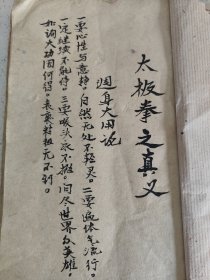 太极拳之真义
週身大用说
一要心性与意静。自然无处不轻灵。二要遍体气流行。
一定继续不能停。三要喉头永不抛。问尽世界众英雄。
如询大功因何得。表裏精粗无不到。